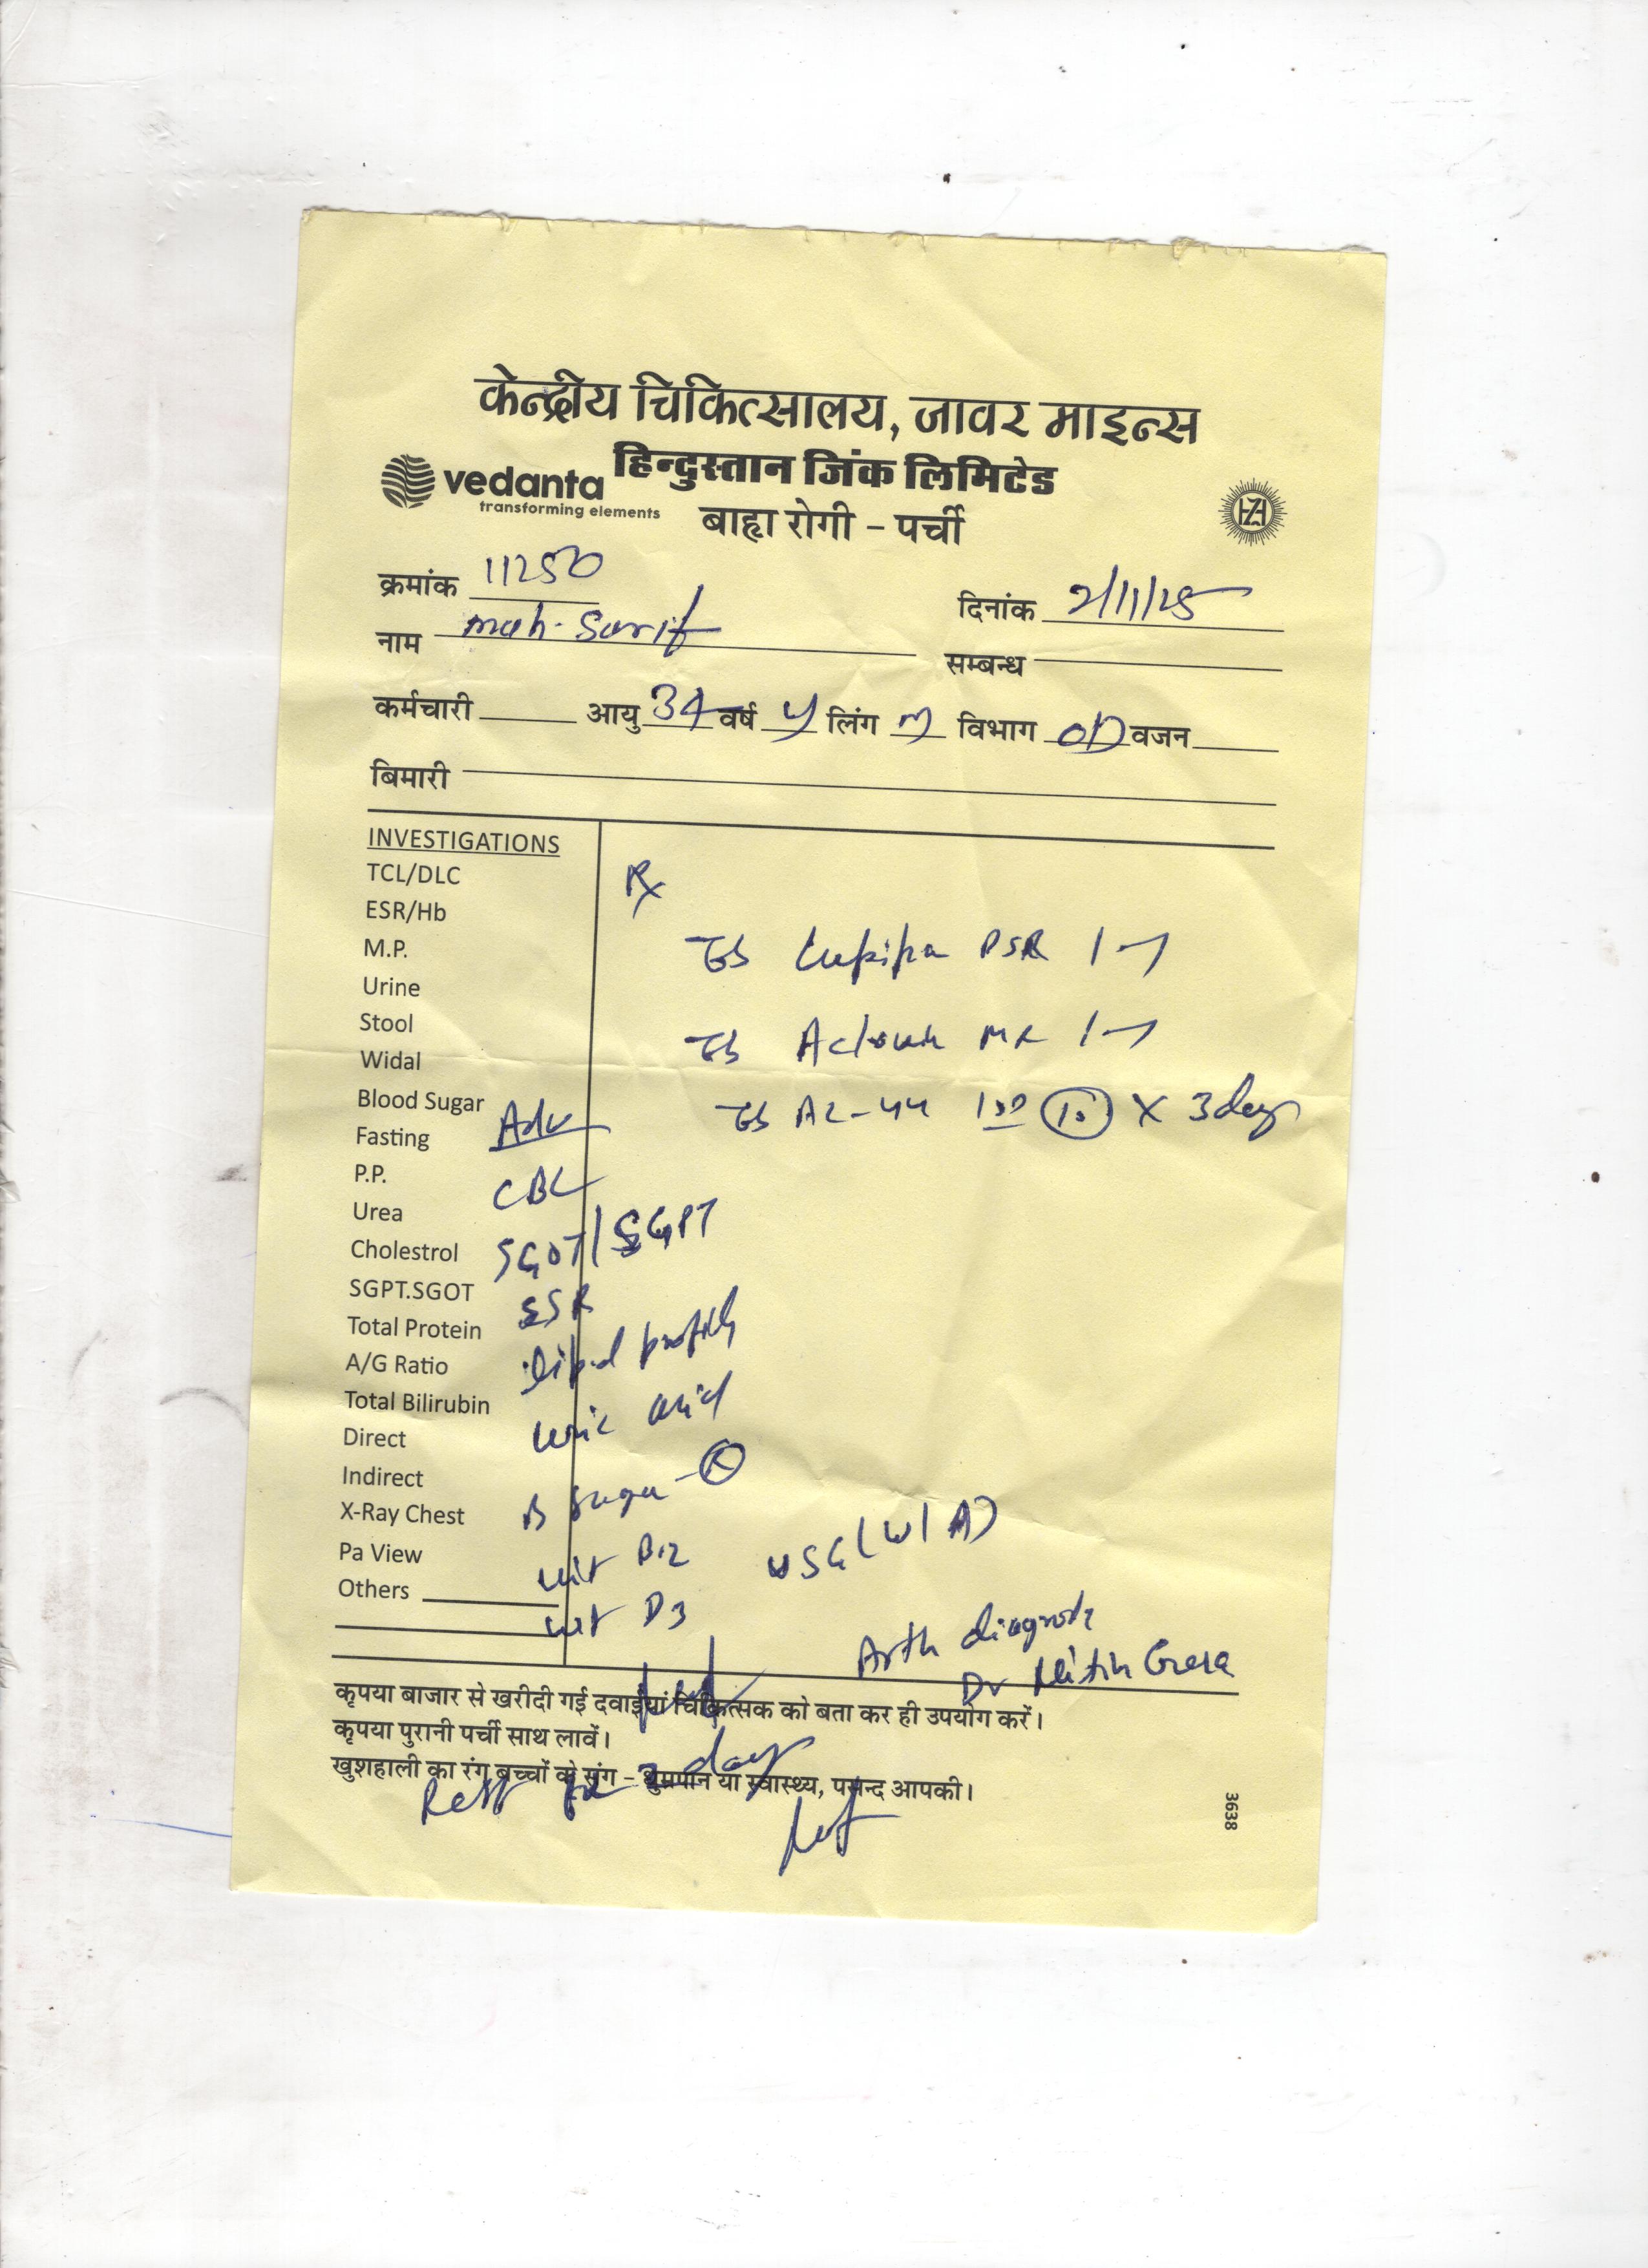 केन्द्रीय चिकित्सालय, जावर माइन्स
हिन्दुस्तान जिंक लिमिटेड
vedanta
transforming elements
बाह्य रोगी – पर्ची
क्रमांक 11250
दिनांक 2/11/25
नाम moh. Sarif
सम्बन्ध
कर्मचारी आयु 34 वर्ष y लिंग M विभाग OD वजन
बिमारी
INVESTIGATIONS
TCL/DLC
ESR/Hb
M.P.
Urine
Stool
Widal
Blood Sugar
Fasting
P.P.
Urea
Cholestrol
SGPT.SGOT
Total Protein
A/G Ratio
Total Bilirubin
Direct
Indirect
X-Ray Chest
Pa View
Others
Rx
DSR 1
MR 1
X 3 day
Adv
CBC
SGOT/SGPT
ESR
lipid profile
uric acid
B Sugar - R
vit B12
vit D3
USG (W/A)
Arth diagnosis
Dr Nitin
कृपया बाजार से खरीदी गई दवाईयां चिकित्सक को बता कर ही उपयोग करें।
कृपया पुरानी पर्ची साथ लावें।
खुशहाली का रंग बच्चों के संग – धुम्रपान या स्वास्थ्य, पसन्द आपकी।
Rest for day
3638